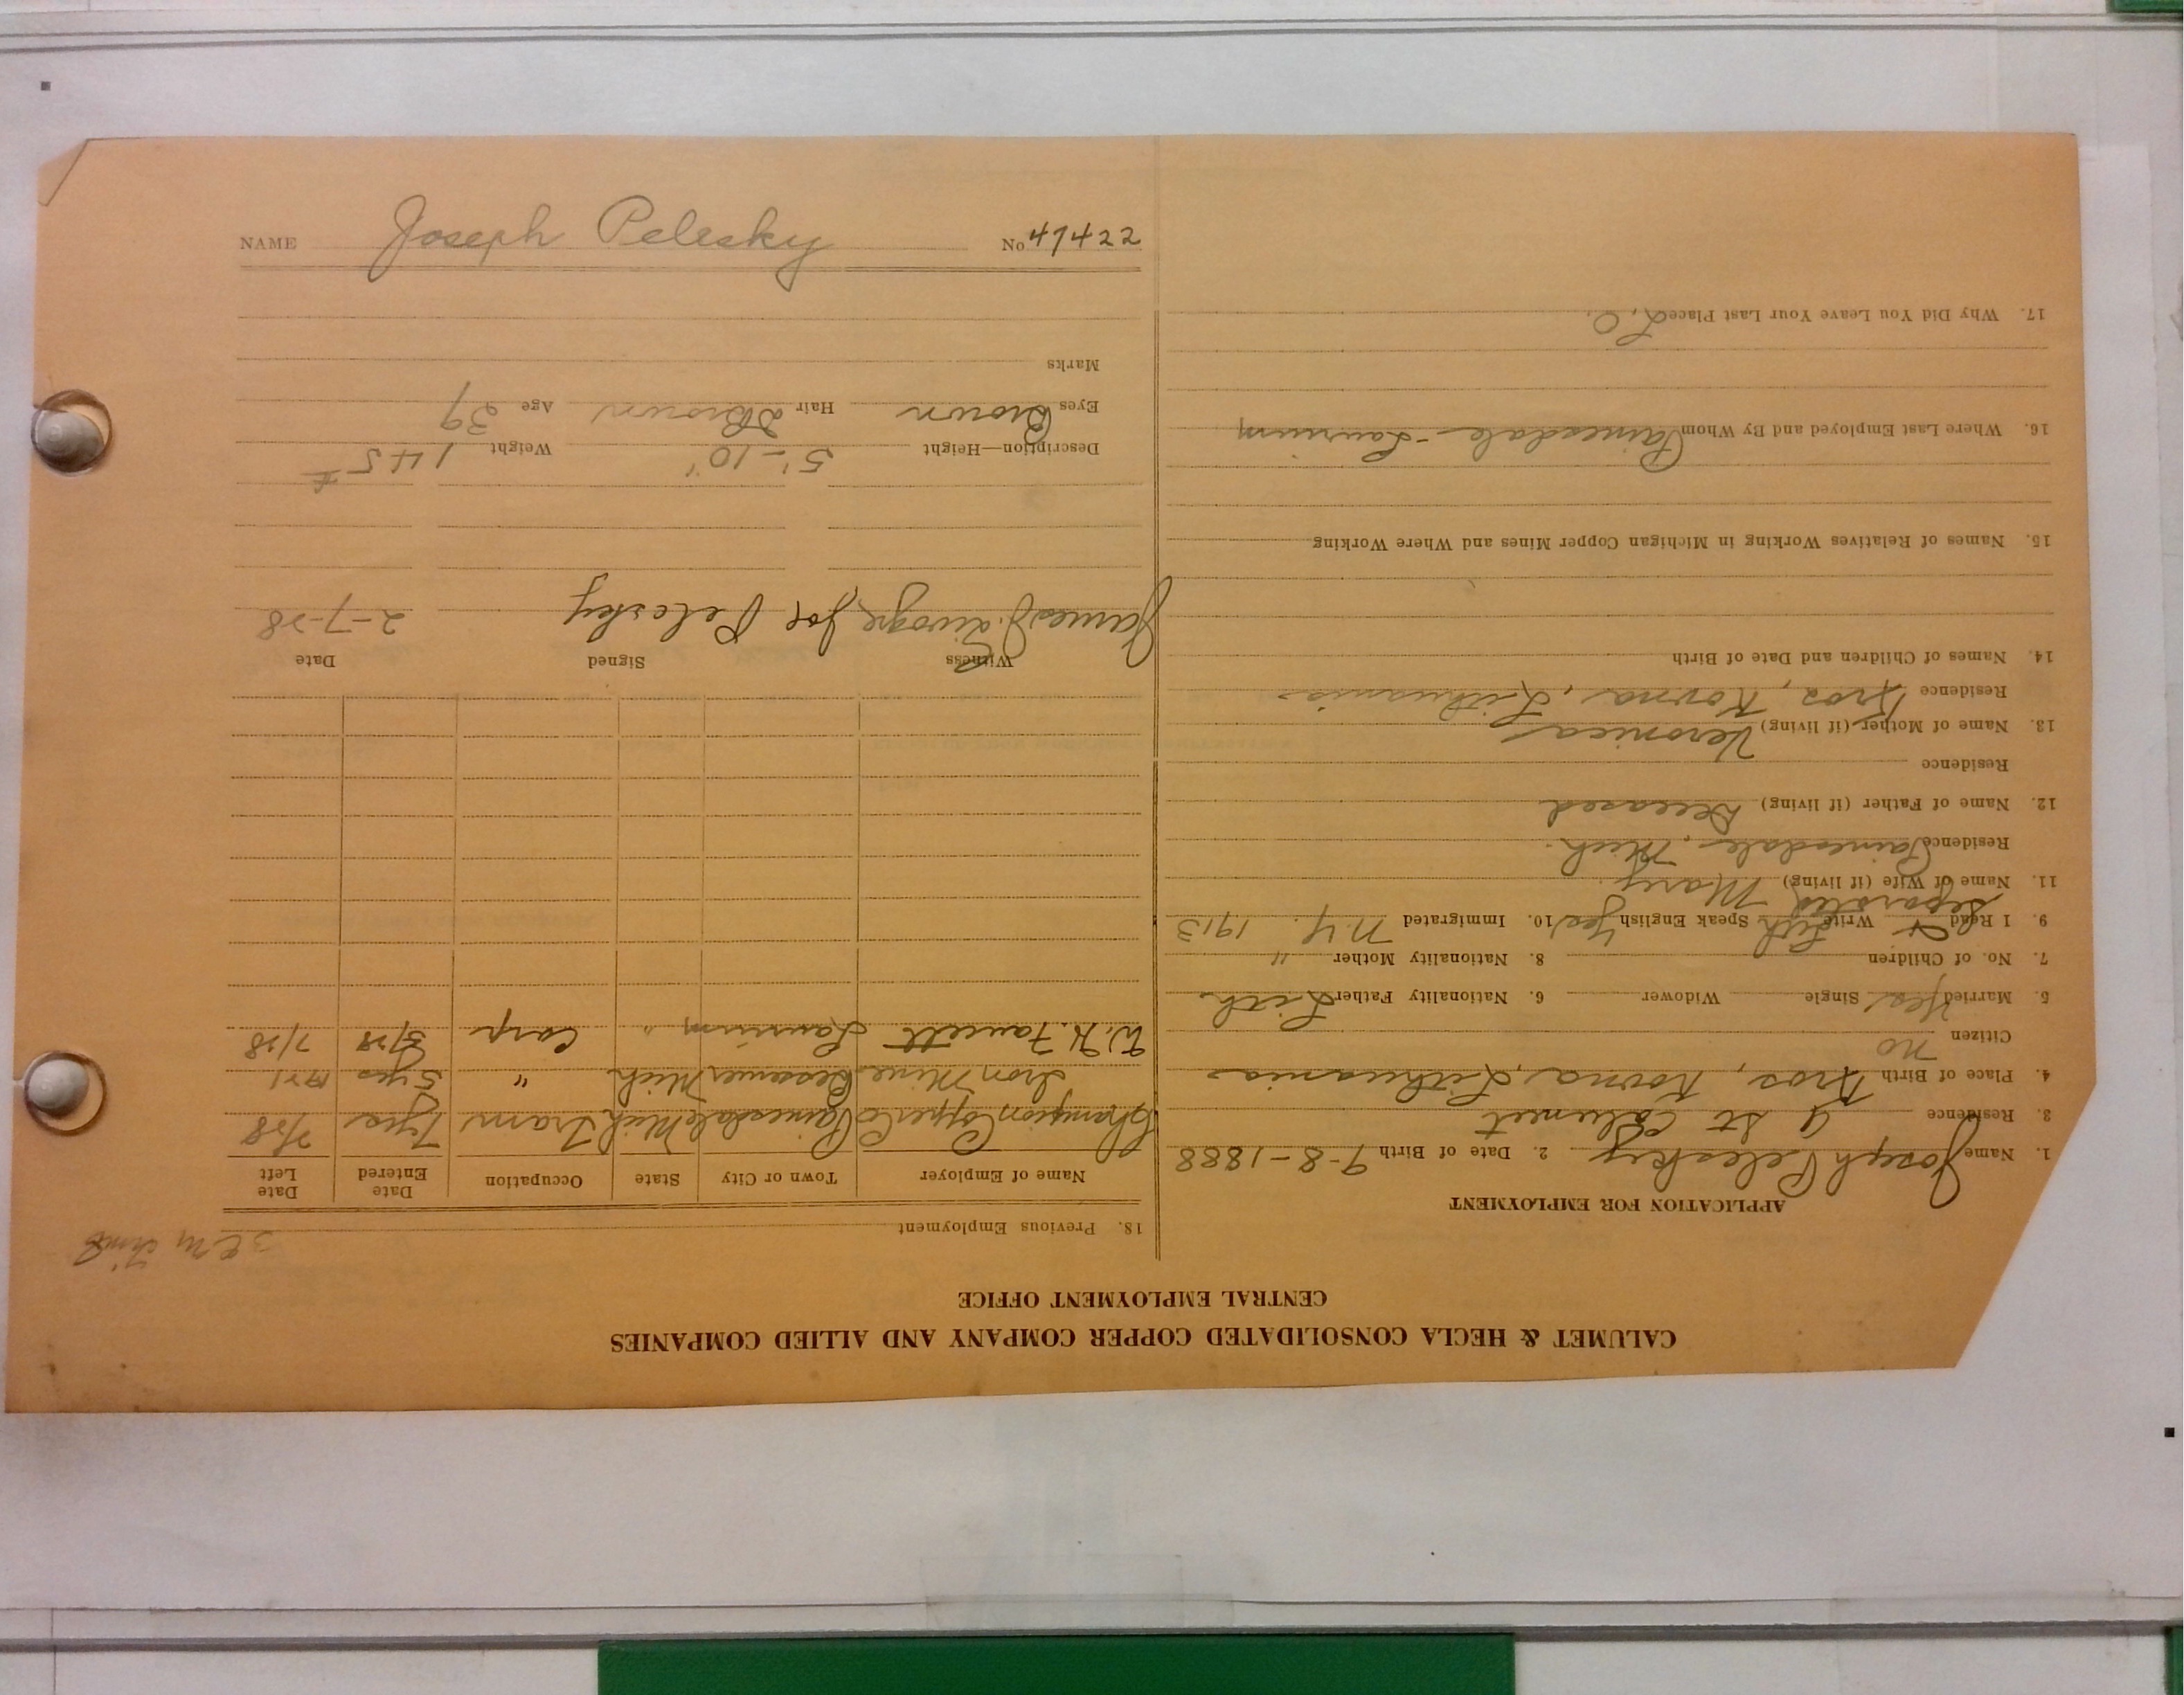 CALUMET & HECLA CONSOLIDATED COPPER COMPANY AND ALLIED COMPANIES
CENTRAL EMPLOYMENT OFFICE
APPLICATION FOR EMPLOYMENT
1. Name Joseph Pelesky 2. Date of Birth 9-8-1888
3. Residence 9 St Calumet
4. Place of Birth Kros, Kovna, Lithuania
Citizen no
5. Married Yes Single Widower 6. Nationality Father Lith
7. No. of Children 8. Nationality Mother "
9. I Read Write Lith Speak English Yes 10. Immigrated N.Y. 1913
Separated
11. Name of Wife (if living) Mary
Residence Painesdale, Mich.
12. Name of Father (if living) Deceased
Residence
13. Name of Mother (if living) Veronica
Residence Kros, Kovna, Lithuania
14. Names of Children and Date of Birth
15. Names of Relatives Working in Michigan Copper Mines and Where Working
16. Where Last Employed and By Whom Painesdale - Laurium
17. Why Did You Leave Your Last Place L.O.
18. Previous Employment
Name of Employer Town or City State Occupation Date Entered Date Left
Champion Copper Co Painesdale Mich Tram 7 yrs 2/28
Iron Mine Bessemer Mich " 5 yrs 1921
W. H. Faucett Laurium " Carp 5/28 7/28
Witness Signed Date
James J. Joe Pelesky 2-7-28
Description—Height 5'-10" Weight 145#
Eyes Brown Hair D Brown Age 39
Marks
NAME Joseph Pelesky No 47422